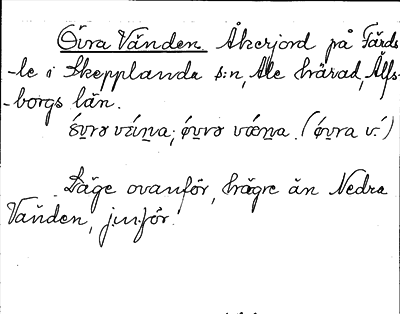 Övra Vänden Åkerjord på Färds
-le i Skepplanda s:n, Ale härad, Älfs-
-borgs län.
(óv̠ra v.)
Läge ovanför, högre än Nedra
Vänden, jmför.